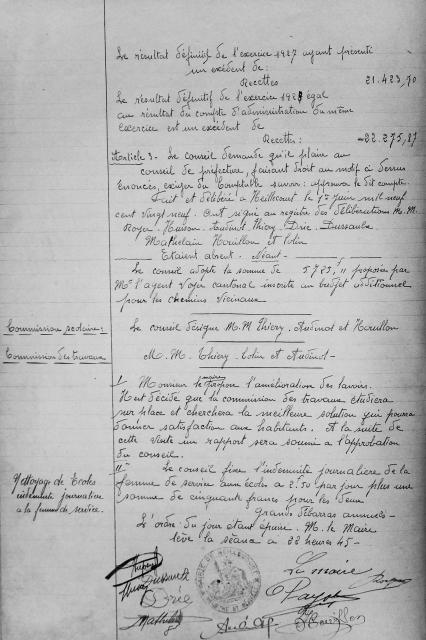 Le résultat définitif de l'exercice 1927 ayant présenté
un excédent de:
Recettes 21.423,70
Le résultat définitif de l'exercice 1928 égal
au résultat du compte d'administration du même
exercice est un excédent de
Recettes: 22.275,87
Article 3. Le conseil demande qu'il plaise au
conseil de préfecture, faisant droit au motif ci dessus
énoncés, exiger du Comptable savoir: approuver le dit compte.
Fait et délibéré à Heillecourt le 1er Juin mil neuf
cent vingt neuf. Ont signé au registre des délibérations M.M.
Royer. Husson. Audinot. Thiery. Drié. Dussaulx
Mathelain Houillon et Colin
Etaient absent. Néant
Le conseil adopte la somme de 5725,11 proposée par
Mr l'agent Voyer cantonal inscrite au budget additionnel
pour les chemins vicinaux
Commission scolaire:
Le conseil désigne M.M Thiery. Audinot et Houillon
Commission des travaux
M. M. Thiery. Colin et Audinot
1/ Monsieur le maire propose l'amélioration des lavoirs.
Il est décidé que la commission des travaux étudiera
sur place et cherchera la meilleure solution qui pourra
donner satisfaction aux habitants. A la suite de
cette visite un rapport sera soumis à l'approbation
du conseil.
Nettoyage des Ecoles
indemnité journalière
à la femme de service.
11° Le conseil fixe l'indemnité journalière de la
femme de service aux écoles à 2.50 par jour plus une
somme de cinquante francs pour les deux
grands débarras annuels
L'ordre du jour étant épuisé. M. le Maire
lève la séance à 22 heures 45
Le maire
Dussaulx
Drié
Houillon